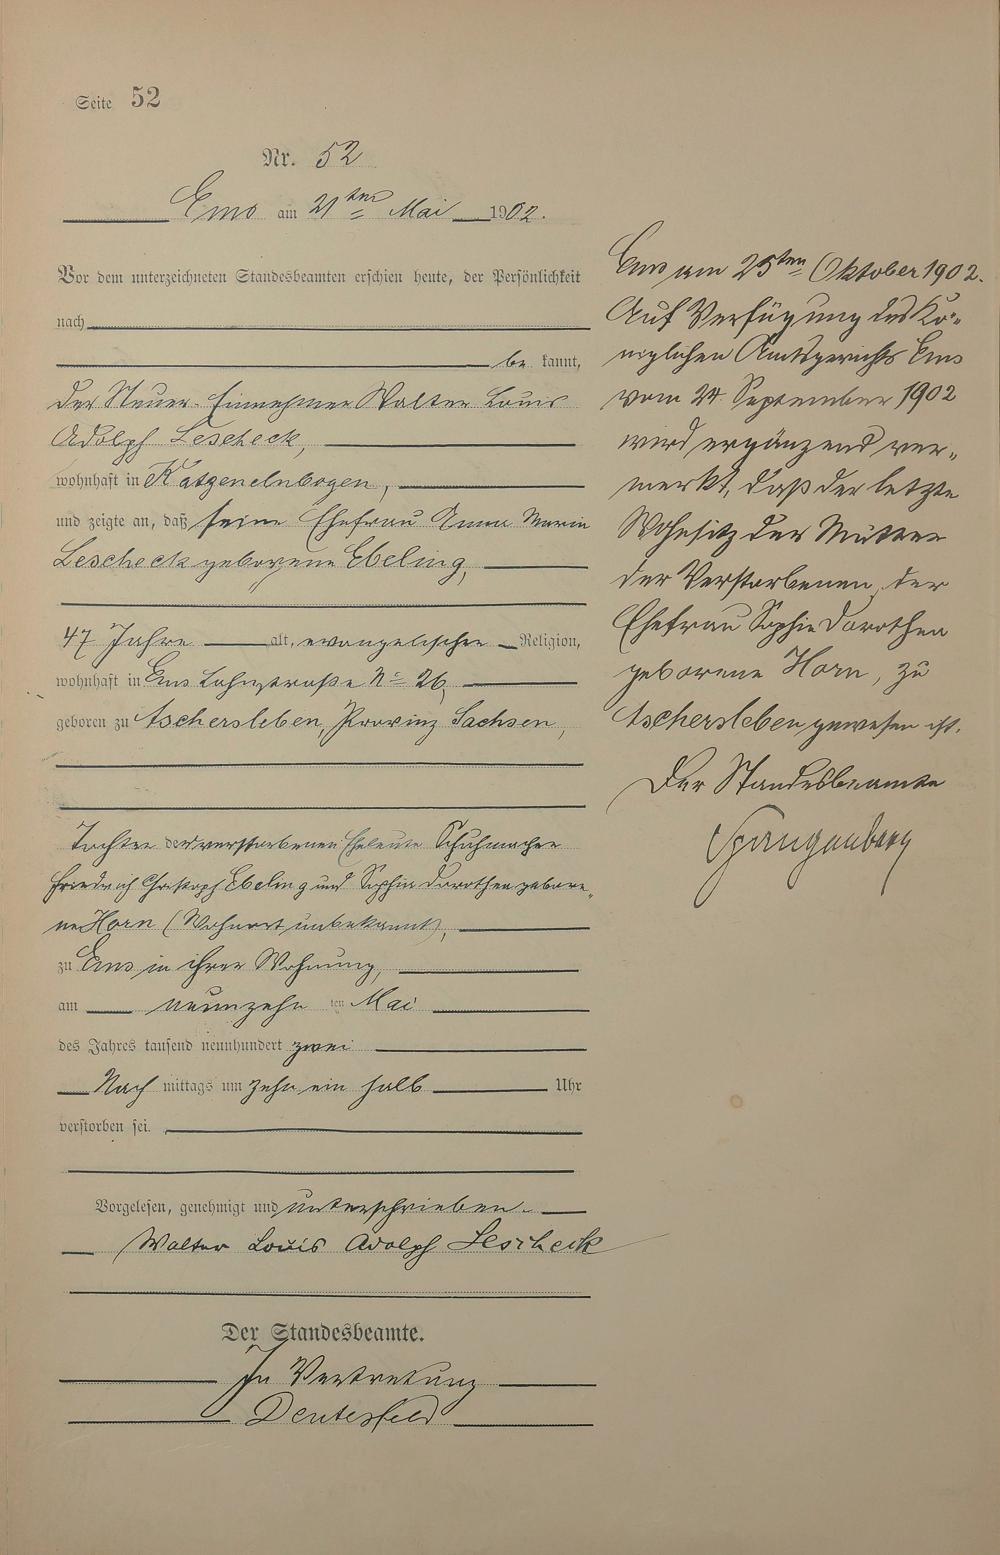 Seite 52
Nr. 52
Ems am 21ten Mai 1902.
Vor dem unterzeichneten Standesbeamten erschien heute, der Persönlichkeit
nach
be kannt,
der Steuer-Einnehmer Walter Louis
Adolph Lescheck,
wohnhaft in Katzenelnbogen,
und zeigte an, daß seine Ehefrau Anna Maria
Lescheck geborene Ebeling,
47 Jahre alt, evangelischer Religion,
wohnhaft in Ems Lahnstraße No 26,
geboren zu Aschersleben, Provinz Sachsen,
Tochter der verstorbenen Eheleute Schuhmacher
Friedrich Christoph Ebeling und Sophie Dorothea gebore-
ne Horn (Wohnort unbekannt),
zu Ems in ihrer Wohnung,
am neunzehn ten Mai
des Jahres tausend neunhundert zwei
Nach mittags um zehn ein halb Uhr
verstorben sei.
Vorgelesen, genehmigt und unterschrieben.
Walter Louis Adolph Lescheck
Der Standesbeamte.
In Vertretung
Deutesfeld
Ems am 25ten Oktober 1902.
Auf Verfügung des Kö-
niglichen Amtsgerichts Ems
vom 24. September 1902
wird ergänzend ver-
merkt, daß der letzte
Wohnsitz der Mutter
der Verstorbenen, der
Ehefrau Sophie Dorothea
geborene Horn, zu
Aschersleben gewesen ist.
Der Standesbeamte
Spangenberg